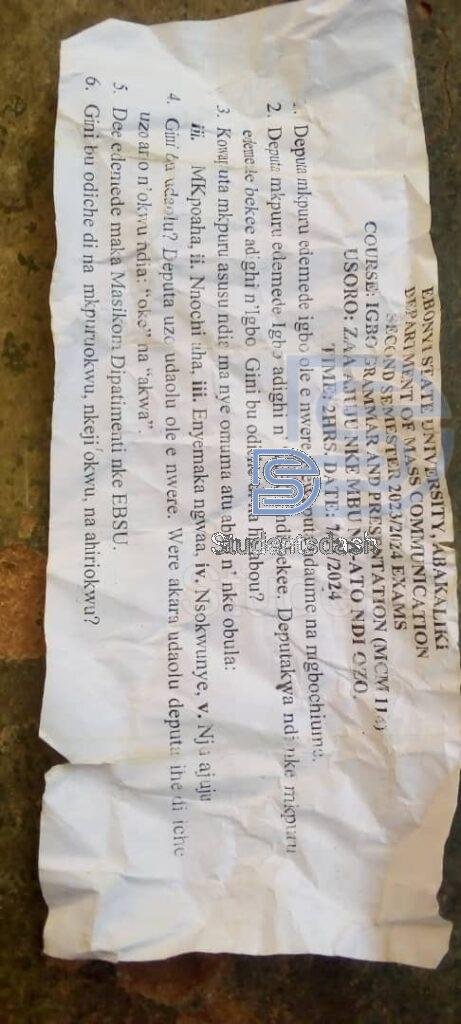 EBONYI STATE UNIVERSITY, ABAKALIKI
DEPARTMENT OF MASS COMMUNICATION
SECOND SEMESTER 2023/2024 EXAMS
COURSE: IGBO GRAMMAR AND PRESENTATION (MCM 114)
USORO: ZAA AJUJU NKE MBU ATO NDI OZO.
TIME: 2HRS, DATE: /2024
Deputa mkpuru edemede igbo ole e nwere udaume na mgbochiume.
2. Deputa mkpuru edemede Igbo adighi n' bekee. Deputakwa ndi nke mkpuru
edemede bekee adighi n'Igbo Gini bu odiche di na abuo?
3. Kowaputa mkpuru asusu ndia ma nye omuma atu abuo n' nke obula:
iii. MKpoaha, ii. Nnochi aha, iii. Enyemaka ngwaa, iv. Nsokwunye, v. Nju ajuju
4. Gini bu udaolu? Deputa uzo udaolu ole e nwere. Were akara udaolu deputa ihe di iche
uzo ato n'okwu ndia: "oke" na "akwa"
5. Dee edemede maka Masikom Dipatimenti nke EBSU.
6. Gini bu odiche di na mkpuruokwu, nkeji okwu, na ahiriokwu?
Studentsdash